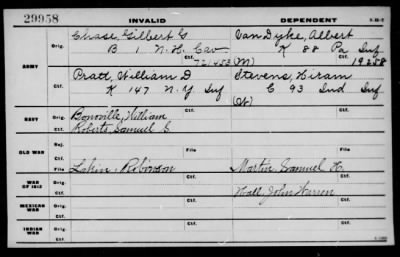 29958
INVALID
DEPENDENT
3-33-2
ARMY
Orig. Chase, Gilbert G
Van Dyke, Albert
B 1 N.H. Cav
K 88 Pa Inf
Ctf. 721453 (M) 19258
Orig. Pratt, William D
Stevens, Hiram
K 147 N.Y Inf
C 93 Ind Inf
Ctf. (W)
NAVY
Orig. Bonville, William
Roberts, Samuel S.
Ctf.
OLD WAR
Rej.
Ctf.
File
File
WAR OF 1812
Orig. Lakin, Robinson
Martin, Samuel H.
Ctf.
Hall, John Warren
MEXICAN WAR
Orig.
Ctf.
Ctf.
INDIAN WAR
Orig.
Ctf.
Ctf.